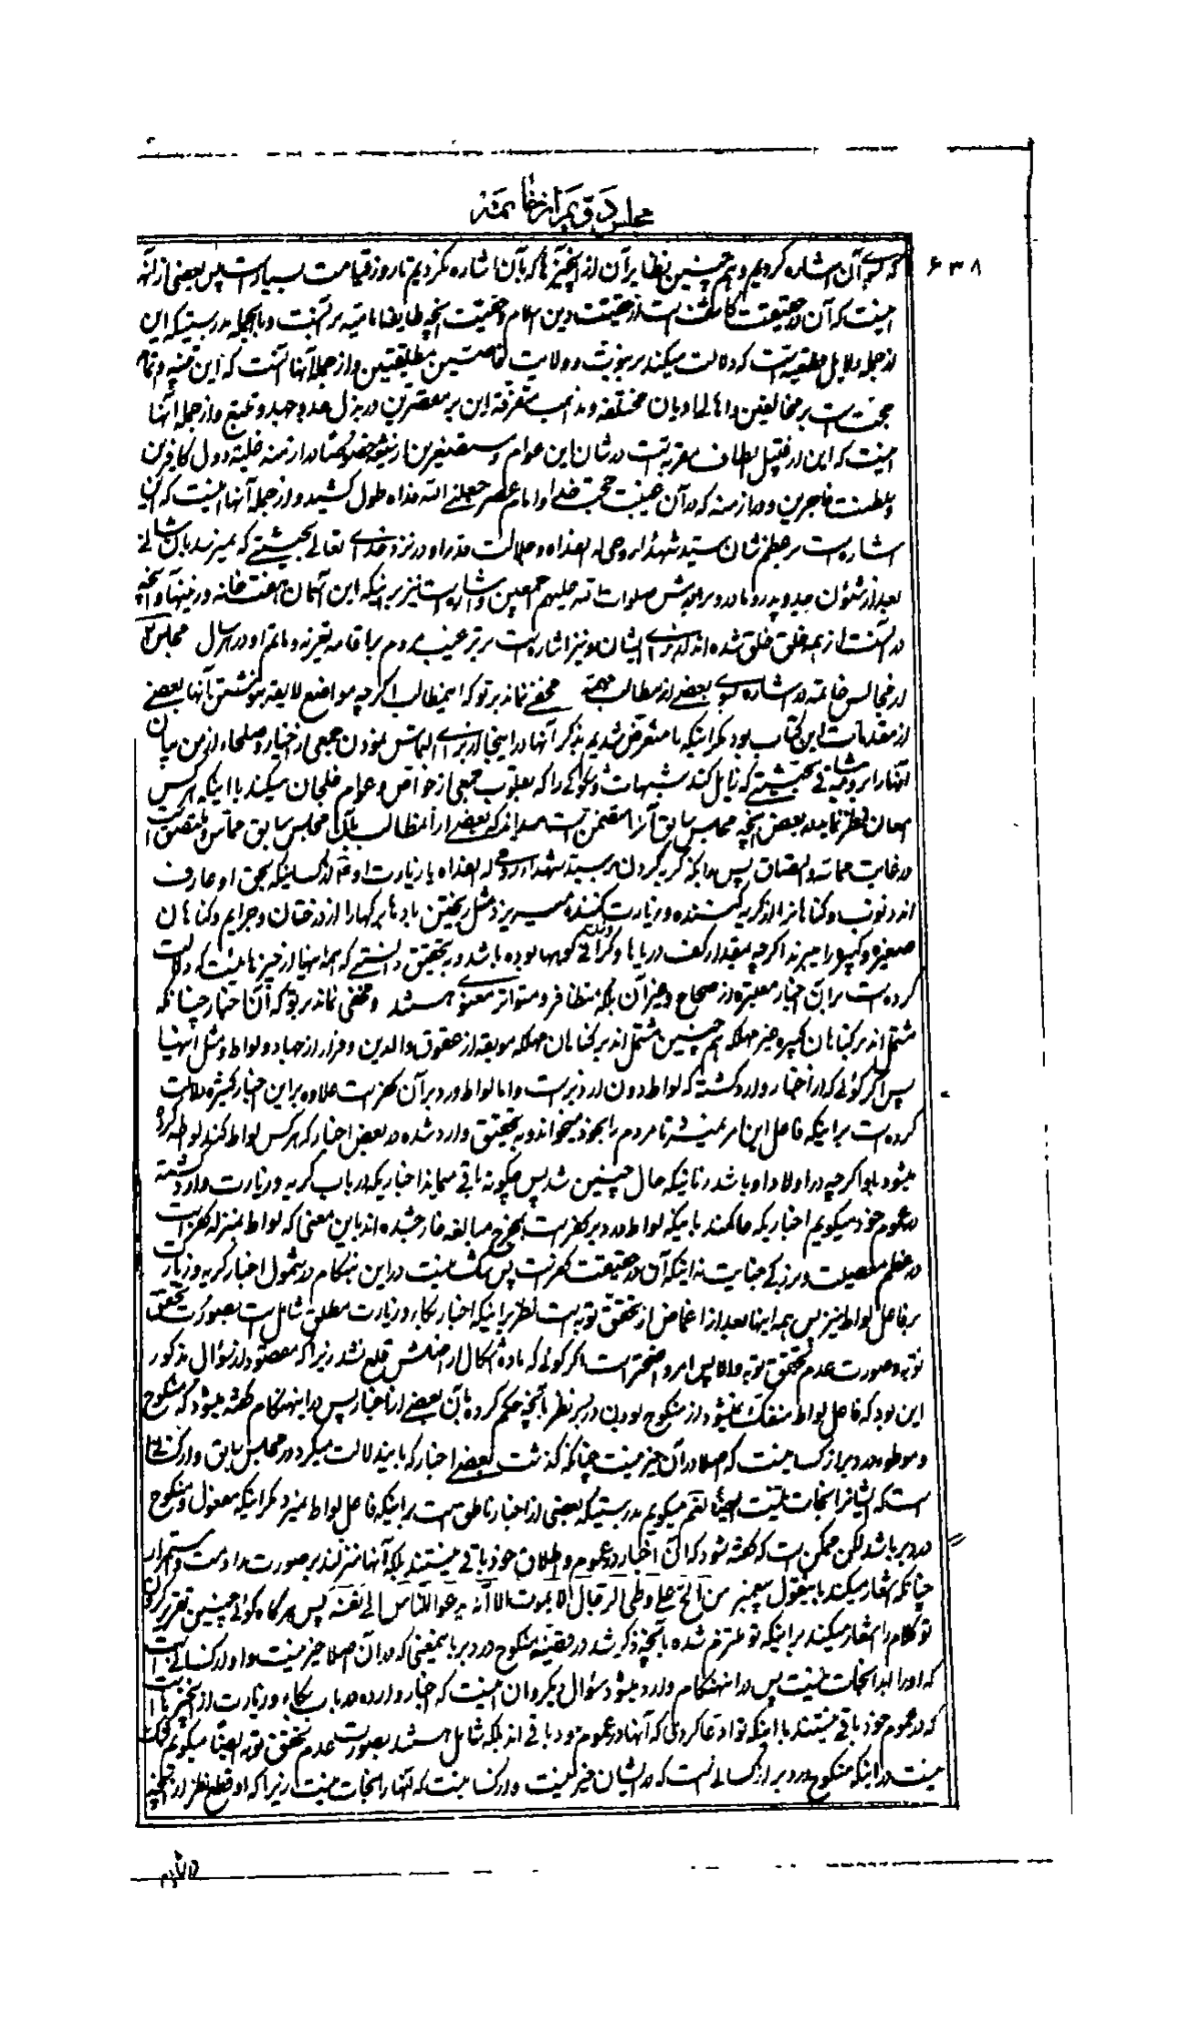 مجلس دویم از خاتمه
۶۳۸
که بسوی آن اشاره کردیم و هم چنین نظایر آن از آنچیزها که بآن اشاره نکردیم تا روز قیامت بسیار است پس بعضی از آنها
اینست که آن در حقیقت کاشف است از حقیقت دین اسلام و حقیقت آنچه طایفه امامیه بر آنست و بالجمله بدرستیکه این
از جمله دلایل قطعیه است که دلالت میکند بر نبوت و ولایت مطلقتین و از جمله آنها آنست که این
حجت است بر مخالفین و اهالی ادیان مختلفه و مذاهب متفرقه این بر مقصرین در بذل جد و جهد و تتبع و از جمله آنها
اینست که این از قبیل الطاف مقربه است در شان این عوام و مستضعفین از شیعه خصوصا در ازمنه غلبه دول کافرین
و سلطنت فاجرین و در ازمنه که در آن غیبت حجت خدا و امام عصر جعلنی الله فداه طول کشید و از جمله آنها اینست که
اشاره است بر عظم شان سید شهداء روحی له الفداه و جلالت قدر او در نزد خدای تعالی بحیثیتی که نمیرسد بآن شانی
بعد از شئون جد و پدر و مادر و برادرش صلوات الله علیهم اجمعین و اشاره است نیز بر اینکه این آسمان هفت خانه و زمینها و آنچه
در آنست از همه خلق خلق شده اند از برای ایشان و نیز اشاره است بر ترغیب مردم بر اقامه تعزیه و ماتم او در هر سال مجلس ۲
از مجالس خاتمه در اشاره بسوی بعضی از مطالب مهمه مخفی نماند بر تو که اینمطالب اگرچه مواضع لایقه بنوشتن آنها بعضی
از مقدمات این کتاب بود مگر اینکه ما متعرض شدیم بذکر آنها در اینجا از برای التماس نمودن جمعی از اخیار و صلحاء از من بیان
آنها را بر وجه بحیثیتی که زایل کند شبهات و شکوکی را که بقلوب جمعی از خواص و عوام خلجان میکند با اینکه هر کس
امعان نظر نماید در بعض آنچه مجالس سابق آنرا متضمن است میداند که بعضی از این مطالب بلکه مجالس سابق مماس و ملتصق است
در غایت مماسه و التصاق پس بدانکه گریه کردن بر سید شهداء روحی له الفداه یا زیارت او کسانیکه بحق او عارف
اند ذنوب و گناهانرا از گریه کننده و زیارت کننده میریزد مثل ریختن بادها برگها را از درختان و جرایم و گناهان
صغیره و کبیره را میبرند اگرچه بمقدار کف دریاها و گرانی کوهها بوده باشد و بتحقیق دانستی که همه اینها از چیزهائیست که دلالت
کرده است بر آن اخبار معتبره از صحاح و غیر آن بلکه متظافره و متواتر معنوی هستند و مخفی نماند بر تو که آن اخبار چنانکه
مشتمل اند بر گناهان کبیره غیر مهلکه هم چنین مشتمل اند بر گناهان مهلکه موبقه از عقوق والدین و فرار از جهاد و لواط و مثل اینها
پس اگر گوئی که در اخبار وارد گشته که لواط دون از دبر است و اما لواط در دبر آن کفر است علاوه بر این اخبار کثیره دلالت
کرده است بر اینکه فاعل این امر نمیشود تا مردم را بخود میخواند و بتحقیق وارد شده در بعض اخبار که هر کس لواط کند لواط کرده
میشود باو اگرچه در اولاد او باشد زمانیکه حال چنین شد پس چگونه باقی میماند اخباریکه در باب گریه و زیارت وارد گشته
در عموم خود میگویم اخباریکه حاکمند باینکه لواط در دبر کفر است بمخرج مبالغه خارج شده اند باین معنی که لواط بمنزله کفر است
در عظم معصیت و بزرگی جنایت نه اینکه آن در حقیقت کفر است پس شک نیست در این هنگام در شمول اخبار گریه و زیارت
بر فاعل لواط نیز پس همه اینها بعد از اغماض از تحقق توبه است نظر بر اینکه اخبار بکاء و زیارت مطلق شامل است بصورت تحقق
توبه و صورت عدم تحقق توبه والا پس امر واضحتر است اگر گوئی که ماده اشکال از اصلش قلع نشد زیرا که مقصود از سؤال مذکور
این بود که فاعل لواط منفک نمیشود از منکوح بودن در دبر نظر بآنچه حکم کرده بآن بعضی از اخبار پس در اینهنگام گفته میشود که منکوح
و موطوء در دبر از کسانیست که اصلا در آن خیر نیست چنانکه گذشت بعضی اخبار که باین دلالت میکرد در مجالس سابق و از کسانی
است که ایشانرا نجات نیست ایضا نقم میگویم بدرستیکه بعضی از اخبار ناطق است بر اینکه فاعل لواط نمیرد مگر اینکه مفعول و منکوح
در دبر باشد لکن ممکن است که گفته شود که آن اخبار در عموم و اطلاق خود باقی نیستند بلکه آنها منزلند بر صورت مداومت و استمرار
چنانکه اشعار میکند باین قول پیغمبر من الح علی وطی الرجال لا یموت الا انه یدعو الناس الی نفسه پس هرگاه گوئی چنین تقریر کردن
تو کلام را اشعار میکند بر اینکه تو ملتزم شده بآنچه ذکر شد در قضیه منکوح در دبر باینمعنی که در آن اصلا خیر نیست و او از کسانی است
که او را ابدا نجات نیست پس در اینهنگام وارد میشود سؤال دیگر و آن اینست که اخبار وارده در باب بکاء و زیارت از آنچیزها است
که در عموم خود باقی نیستند با اینکه تو ادعا کردی که آنها در عموم خود باقی اند بلکه شامل هستند بصورت عدم تحقق توبه ایضا میگویم شک
نیست در اینکه منکوح در دبر از کسانی است که در ایشان خیر نیست و از کسانیست که آنها را نجات نیست زیرا که او قطع نظر از آنچه